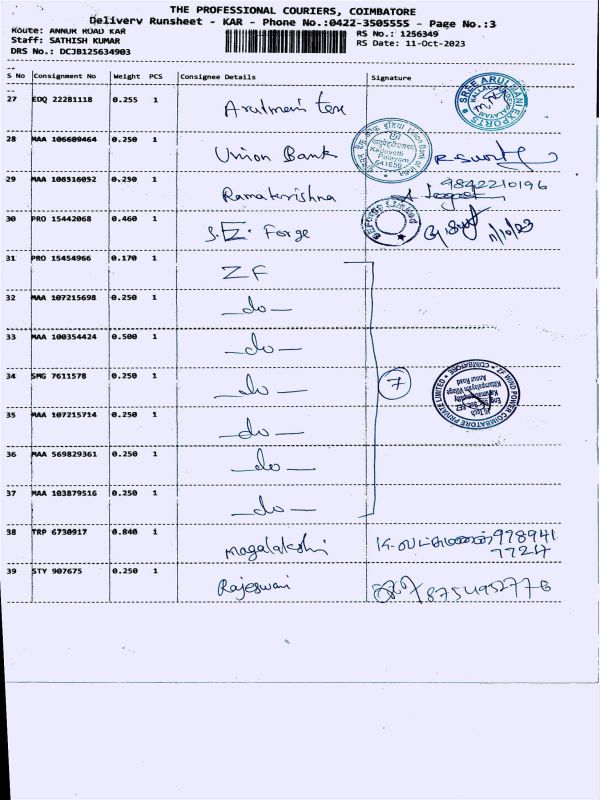 THE PROFESSIONAL COURIERS, COIMBATORE
Delivery Runsheet - KAR - Phone No.:0422-3505555 - Page No.:3
Route: ANNUR ROAD KAR
Staff: SATHISH KUMAR
DRS No.: DCJB125634903
RS No.: 1256349
RS Date: 11-Oct-2023
S No Consignment No Weight PCS Consignee Details Signature
27 EDQ 22281118 0.255 1 Arulmani tex
SREE ARULMANI EXPORTS
28 MAA 106609464 0.250 1 Union Bank
Union Bank of India
641659
29 MAA 106516052 0.250 1 Ramakrishna 9842210196
30 PRO 15442068 0.460 1 S.E. Forge 11/10/23
31 PRO 15454966 0.170 1 ZF
32 MAA 107215698 0.250 1 —do—
33 MAA 100354424 0.500 1 —do—
34 SMG 7611578 0.250 1 —do— 7
ZF WIND POWER COIMBATORE PRIVATE LIMITED
COIMBATORE
Annur Road
35 MAA 107215714 0.250 1 —do—
36 MAA 569829361 0.250 1 —do—
37 MAA 103879516 0.250 1 —do—
38 TRP 6730917 0.840 1 Magalakshi 978941
7724
39 STY 907675 0.250 1 Rajeswari 8754952776